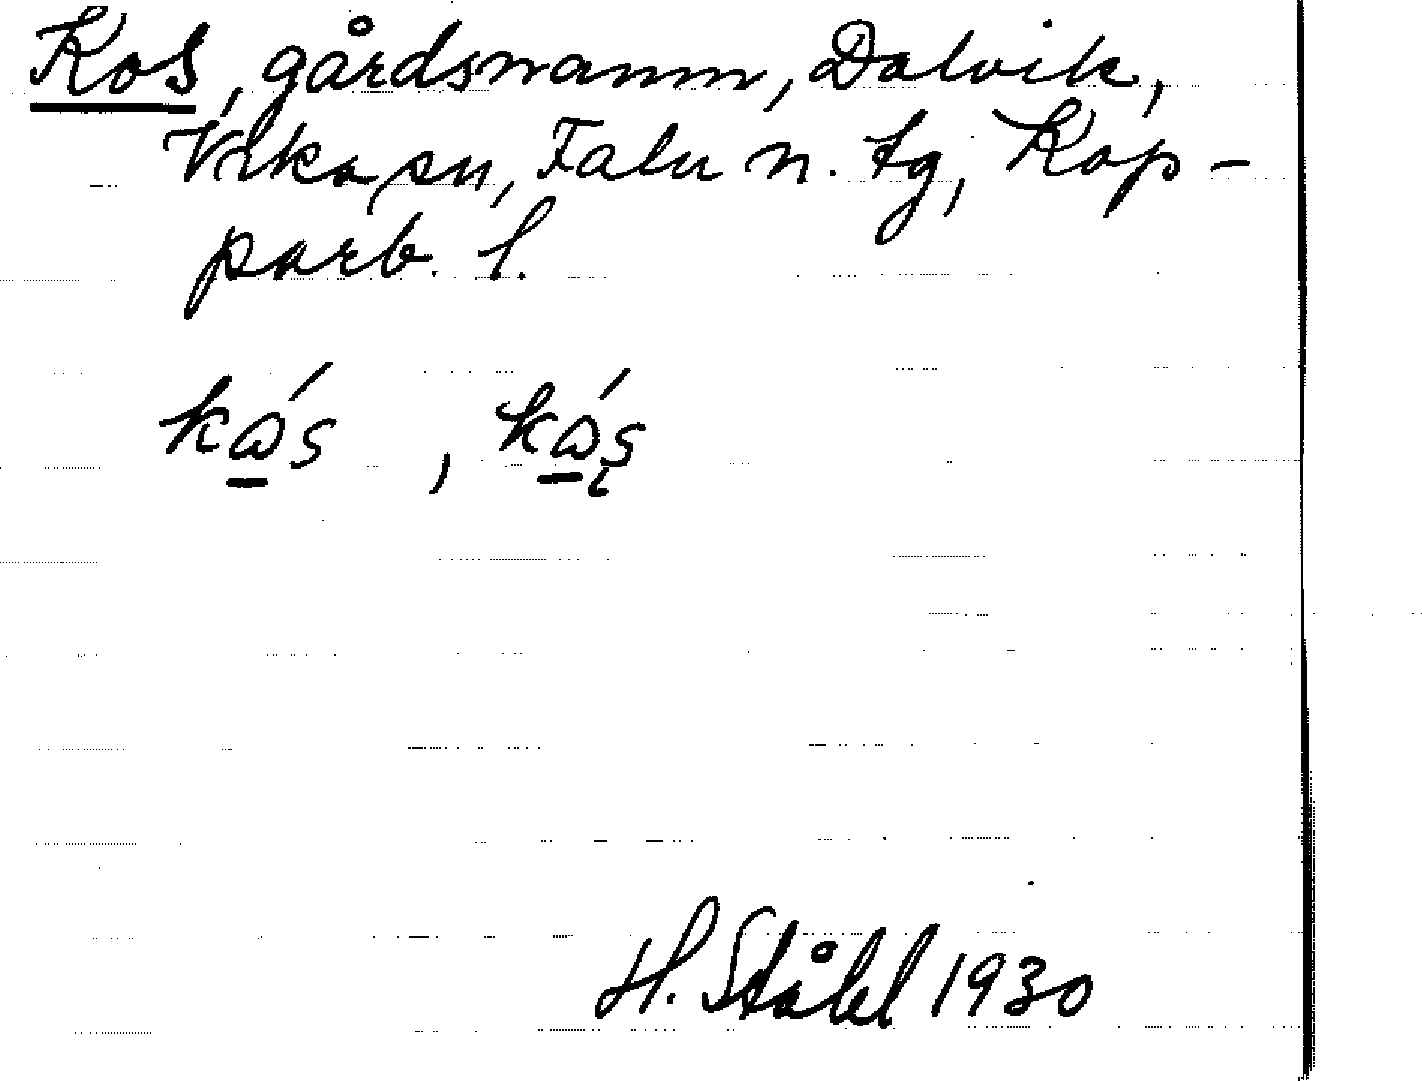 Kos, gårdsnamn, Dalvik,
Vika sn, Falu n. tg, Kop-
parb. l.
kɷ̲́s , kɷ̲́ʂ
H. Ståhl 1930